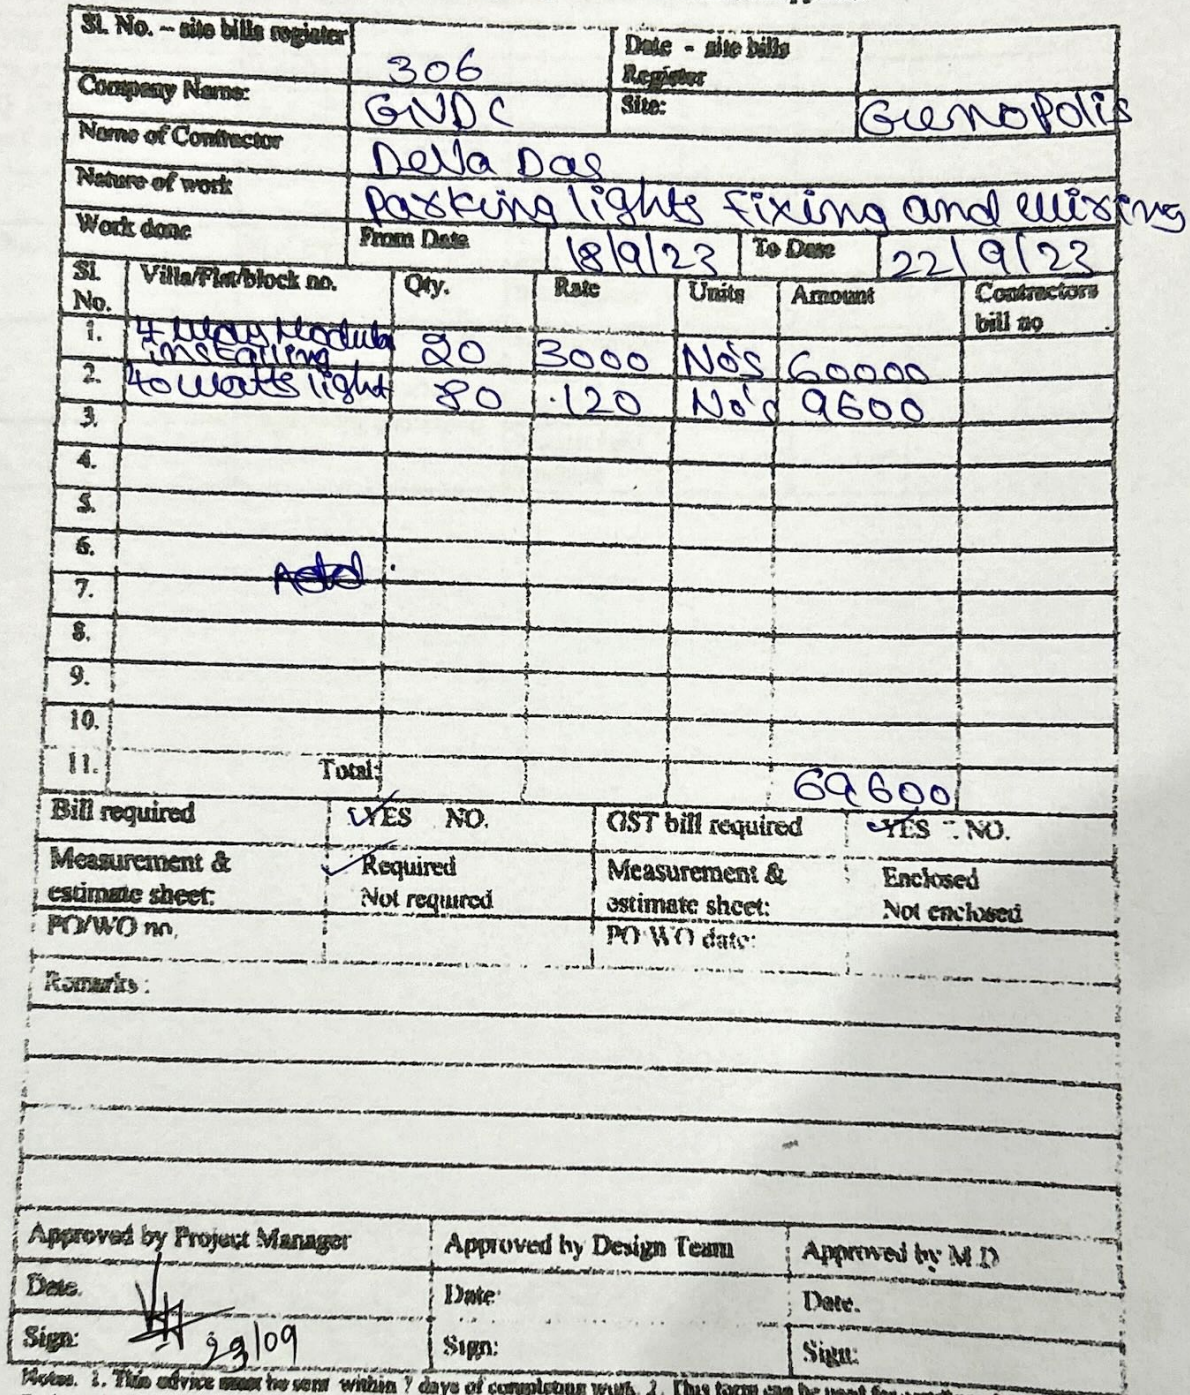 Sl. No. – site bills register 306 Date - site bills Register
Company Name: GNDC Site: Genopolis
Name of Contractor Deva Das
Nature of work Parking lights fixing and wiring
Work done From Date 18/9/23 To Date 22/9/23
Sl. No. Villa/Flat/block no. Qty. Rate Units Amount Contractors bill no
1. 4 way Modula installing 20 3000 No's 60000
2. 40 watts light 80 120 No's 9600
3.
4.
5.
6.
7.
8.
9.
10.
11. Total: 69600
Bill required YES NO. GST bill required YES NO.
Measurement & estimate sheet: Required Measurement & estimate sheet: Enclosed
Not required Not enclosed
PO/WO no. PO WO date:
Remarks :
Approved by Project Manager Approved by Design Team Approved by M.D
Date. Date: Date.
Sign: 23/09 Sign: Sign:
Notes. 1. This advice must be sent within 7 days of completion work. 2. This form can be used for